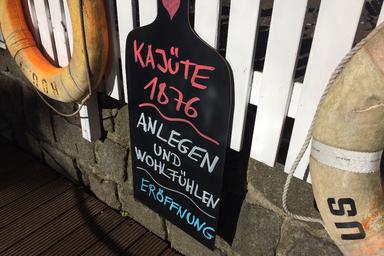 KAJÜTE
1876
ANLEGEN
UND
WOHLFÜHLEN
ERÖFFNUNG
US